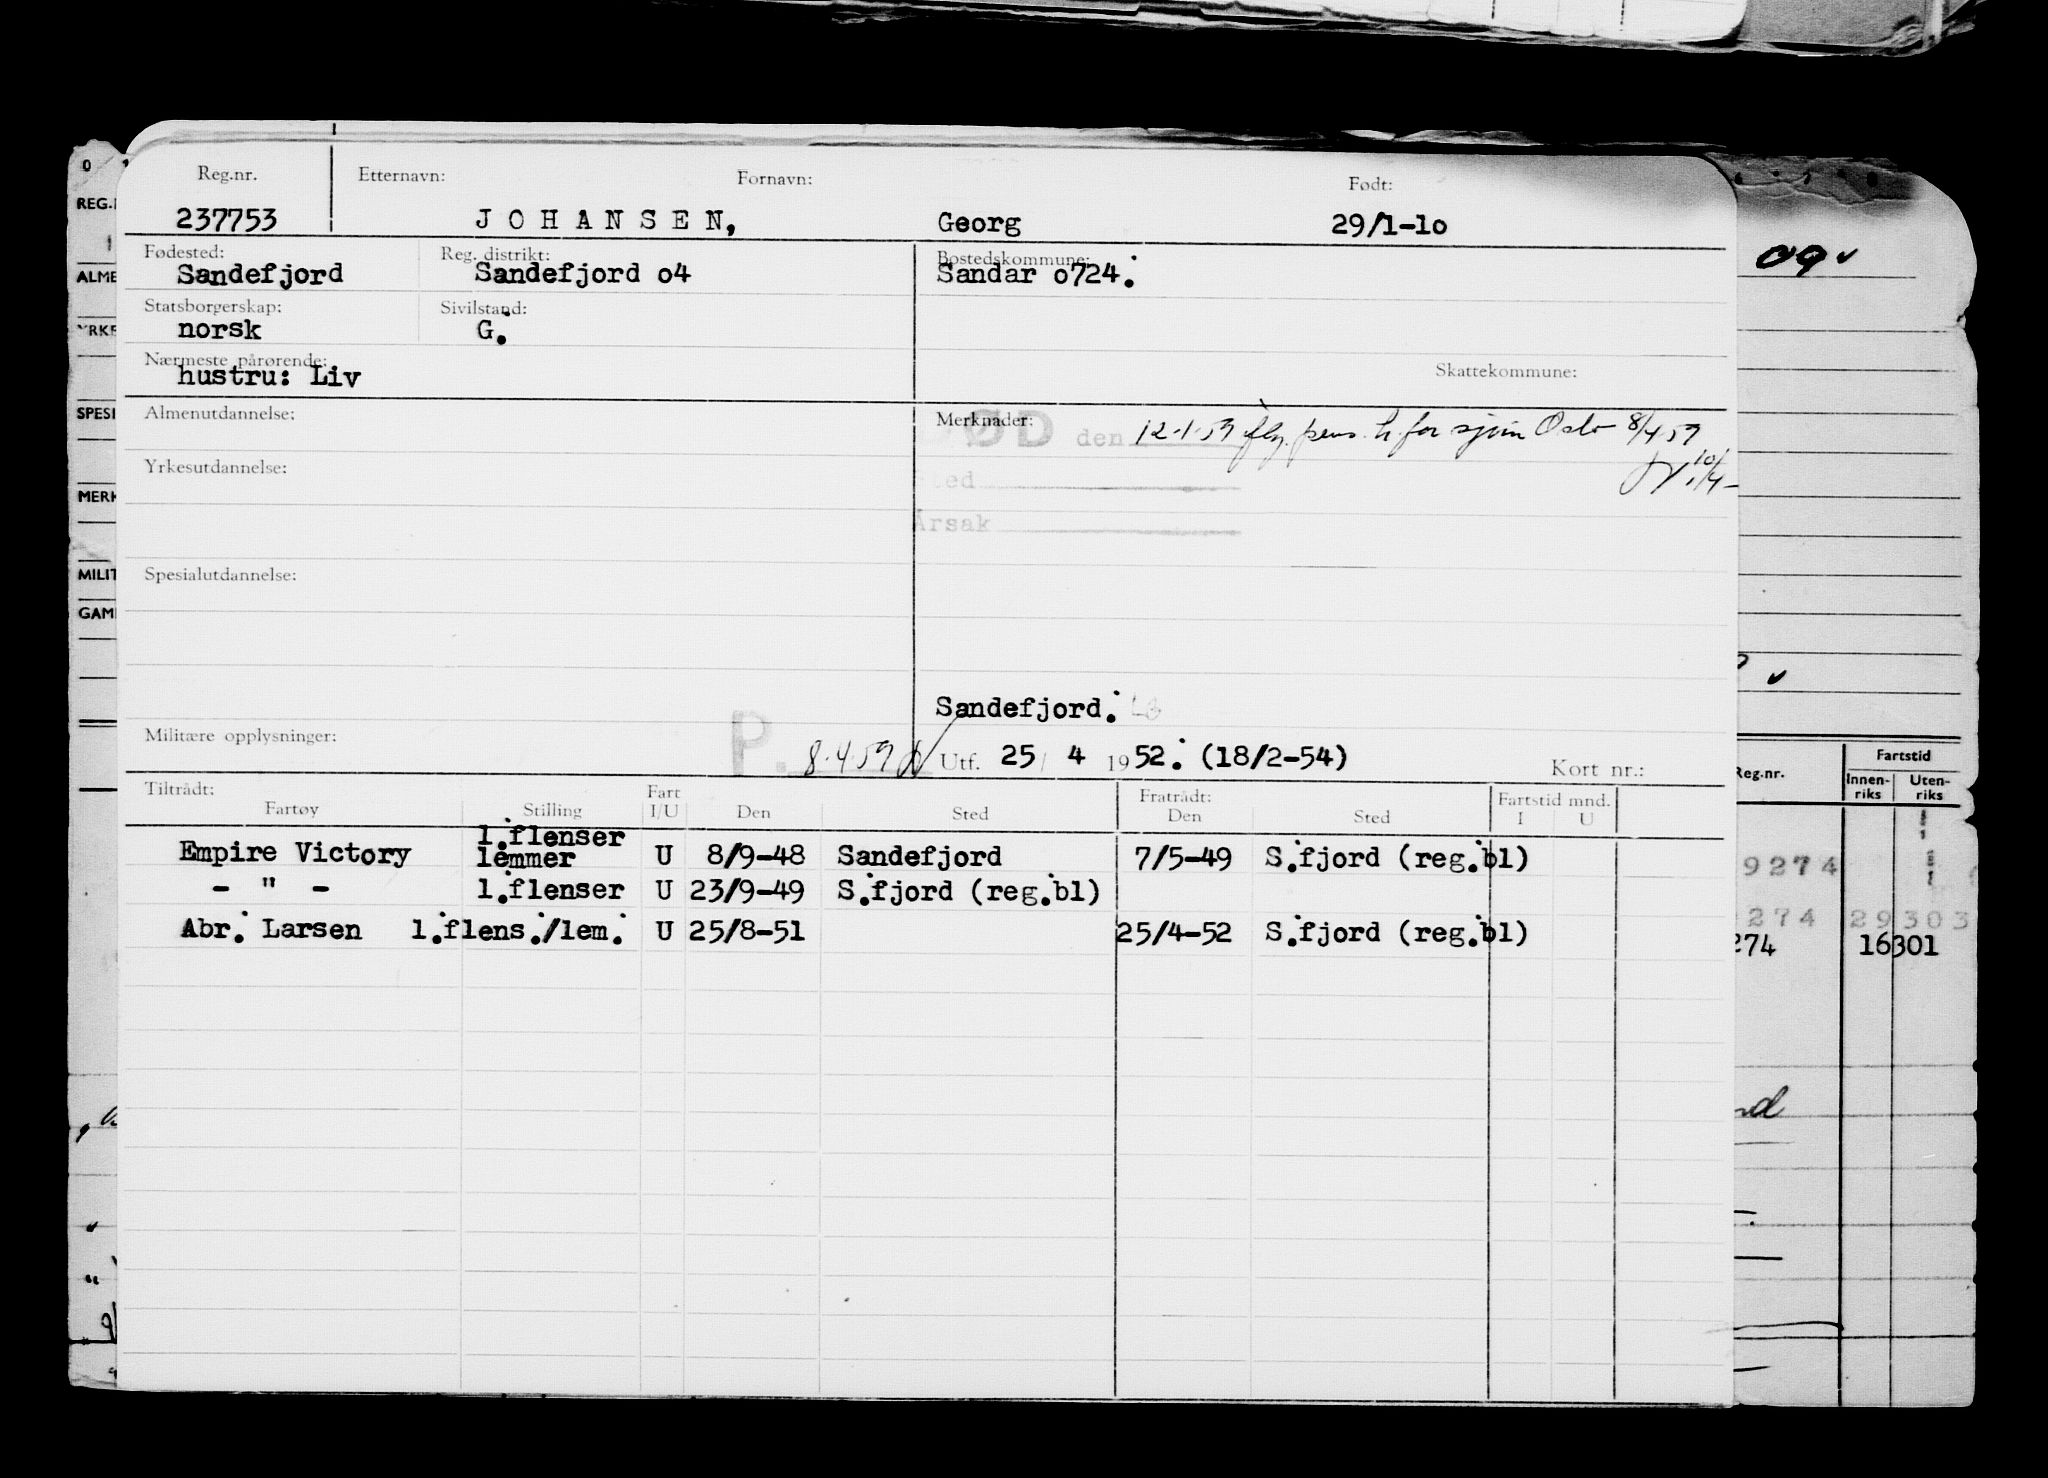 Reg.nr. Etternavn: Fornavn: Født:
237753 JOHANSEN, Georg 29/1-1o
Fødested: Reg. distrikt: Bostedskommune:
Sandefjord Sandefjord o4 Sandar o724.
Statsborgerskap: Sivilstand:
norsk G.
Nærmeste pårørende: Skattekommune:
hustru: Liv
Almenutdannelse: Merknader:
ØD den 12-1-59 flg. pens. tr. for sjøm Oslo 8/4 59
10/4-
Yrkesutdannelse:
sted
Årsak
Spesialutdannelse:
Sandefjord.
Militære opplysninger: P. 8.4.59 Utf. 25/ 4 1952. (18/2-54) Kort nr.:
Tiltrådt: Fratrådt: Fartstid mnd.
Fartøy Stilling Fart I/U Den Sted Den Sted I U
l.flenser
Empire Victory lemmer U 8/9-48 Sandefjord 7/5-49 S.fjord (reg.bl)
- " - l.flenser U 23/9-49 S.fjord (reg.bl)
Abr. Larsen l.flens./lem. U 25/8-51 25/4-52 S.fjord (reg.bl)
0
REG.
ALME
YRKE
SPESI
MERK
MILIT
GAM
09
Reg.nr. Fartstid
Innen-riks Uten-riks
9274
274 29303
274 16301
nd